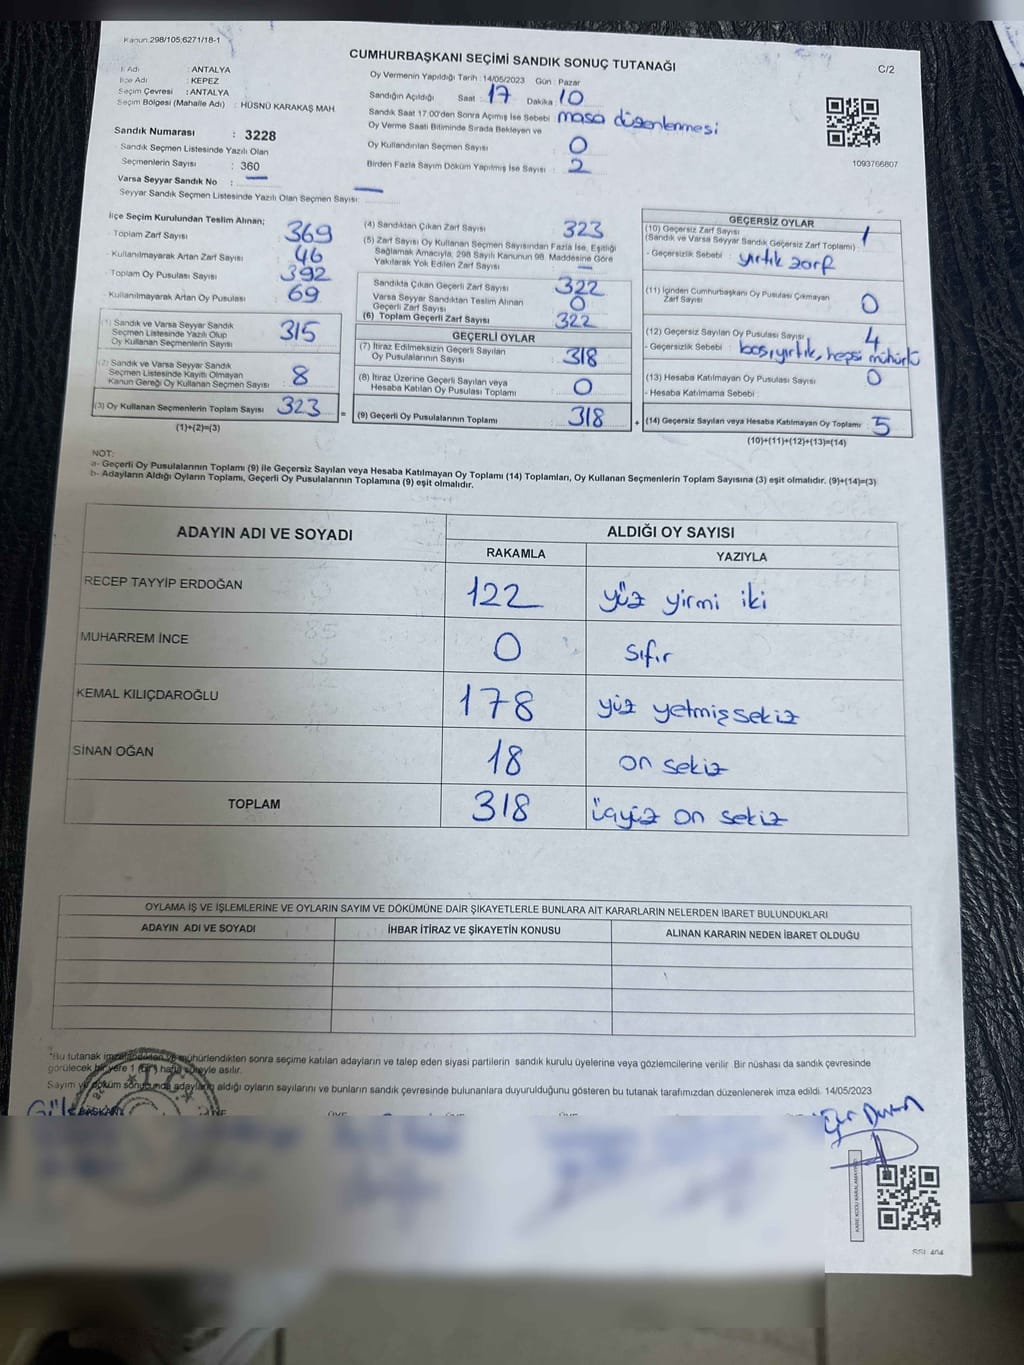 Kanun 298/105,6271/18-1
CUMHURBAŞKANI SEÇİMİ SANDIK SONUÇ TUTANAĞI
C/2
İl Adı : ANTALYA
İlçe Adı : KEPEZ
Seçim Çevresi : ANTALYA
Seçim Bölgesi (Mahalle Adı) : HÜSNÜ KARAKAŞ MAH.
Sandık Numarası : 3228
Sandık Seçmen Listesinde Yazılı Olan
Seçmenlerin Sayısı : 360
Varsa Seyyar Sandık No : —
Seyyar Sandık Seçmen Listesinde Yazılı Olan Seçmen Sayısı: —
Oy Vermenin Yapıldığı Tarih : 14/05/2023 Gün : Pazar
Sandığın Açıldığı Saat : 17 Dakika : 10
Sandık Saat 17.00'den Sonra Açımış İse Sebebi : masa düzenlenmesi
Oy Verme Saati Bitiminde Sırada Bekleyen ve
Oy Kullandırılan Seçmen Sayısı : 0
Birden Fazla Sayım Döküm Yapılmış İse Sayısı : 2
1093766807
İlçe Seçim Kurulundan Teslim Alınan;
- Toplam Zarf Sayısı : 369
- Kullanılmayarak Artan Zarf Sayısı : 46
- Toplam Oy Pusulası Sayısı : 392
- Kullanılmayarak Artan Oy Pusulası : 69
(1) Sandık ve Varsa Seyyar Sandık
Seçmen Listesinde Yazılı Olup
Oy Kullanan Seçmenlerin Sayısı : 315
(2) Sandık ve Varsa Seyyar Sandık
Seçmen Listesinde Kayıtlı Olmayan
Kanun Gereği Oy Kullanan Seçmen Sayısı : 8
(3) Oy Kullanan Seçmenlerin Toplam Sayısı : 323 =
(1)+(2)=(3)
(4) Sandıktan Çıkan Zarf Sayısı : 323
(5) Zarf Sayısı Oy Kullanan Seçmen Sayısından Fazla İse, Eşitliği
Sağlamak Amacıyla, 298 Sayılı Kanunun 98. Maddesine Göre
Yakılarak Yok Edilen Zarf Sayısı : —
Sandıkta Çıkan Geçerli Zarf Sayısı : 322
Varsa Seyyar Sandıktan Teslim Alınan
Geçerli Zarf Sayısı : 0
(6) Toplam Geçerli Zarf Sayısı : 322
GEÇERLİ OYLAR
(7) İtiraz Edilmeksizin Geçerli Sayılan
Oy Pusulalarının Sayısı : 318
(8) İtiraz Üzerine Geçerli Sayılan veya
Hesaba Katılan Oy Pusulaları Toplamı : 0
(9) Geçerli Oy Pusulalarının Toplamı : 318 +
GEÇERSİZ OYLAR
(10) Geçersiz Zarf Sayısı : 1
(Sandık ve Varsa Seyyar Sandık Geçersiz Zarf Toplamı)
- Geçersizlik Sebebi : yırtık zarf
(11) İçinden Cumhurbaşkanı Oy Pusulası Çıkmayan
Zarf Sayısı : 0
(12) Geçersiz Sayılan Oy Pusulası Sayısı : 4
- Geçersizlik Sebebi : boş, yırtık, hepsi mühürlü
(13) Hesaba Katılmayan Oy Pusulası Sayısı : 0
- Hesaba Katılmama Sebebi :
(14) Geçersiz Sayılan veya Hesaba Katılmayan Oy Toplamı : 5
(10)+(11)+(12)+(13)=(14)
NOT:
a- Geçerli Oy Pusulalarının Toplamı (9) ile Geçersiz Sayılan veya Hesaba Katılmayan Oy Toplamı (14) Toplamları, Oy Kullanan Seçmenlerin Toplam Sayısına (3) eşit olmalıdır. (9)+(14)=(3)
b- Adayların Aldığı Oyların Toplamı, Geçerli Oy Pusulalarının Toplamına (9) eşit olmalıdır.
ADAYIN ADI VE SOYADI
ALDIĞI OY SAYISI
RAKAMLA YAZIYLA
RECEP TAYYİP ERDOĞAN 122 yüz yirmi iki
MUHARREM İNCE 0 sıfır
KEMAL KILIÇDAROĞLU 178 yüz yetmiş sekiz
SİNAN OĞAN 18 on sekiz
TOPLAM 318 üçyüz on sekiz
OYLAMA İŞ VE İŞLEMLERİNE VE OYLARIN SAYIM VE DÖKÜMÜNE DAİR ŞİKAYETLERLE BUNLARA AİT KARARLARIN NELERDEN İBARET BULUNDUKLARI
ADAYIN ADI VE SOYADI İHBAR İTİRAZ VE ŞİKAYETİN KONUSU ALINAN KARARIN NEDEN İBARET OLDUĞU
*Bu tutanak imzalandıktan ve mühürlendikten sonra seçime katılan adayların ve talep eden siyasi partilerin sandık kurulu üyelerine veya gözlemcilerine verilir. Bir nüshası da sandık çevresinde
görülecek bir yere 1 (bir) hafta süreyle asılır.
Sayım ve döküm sonucunda adayların aldığı oyların sayılarını ve bunların sandık çevresinde bulunanlara duyurulduğunu gösteren bu tutanak tarafımızdan düzenlenerek imza edildi. 14/05/2023
BAŞKAN
KARE KODU KARALAMAYINIZ